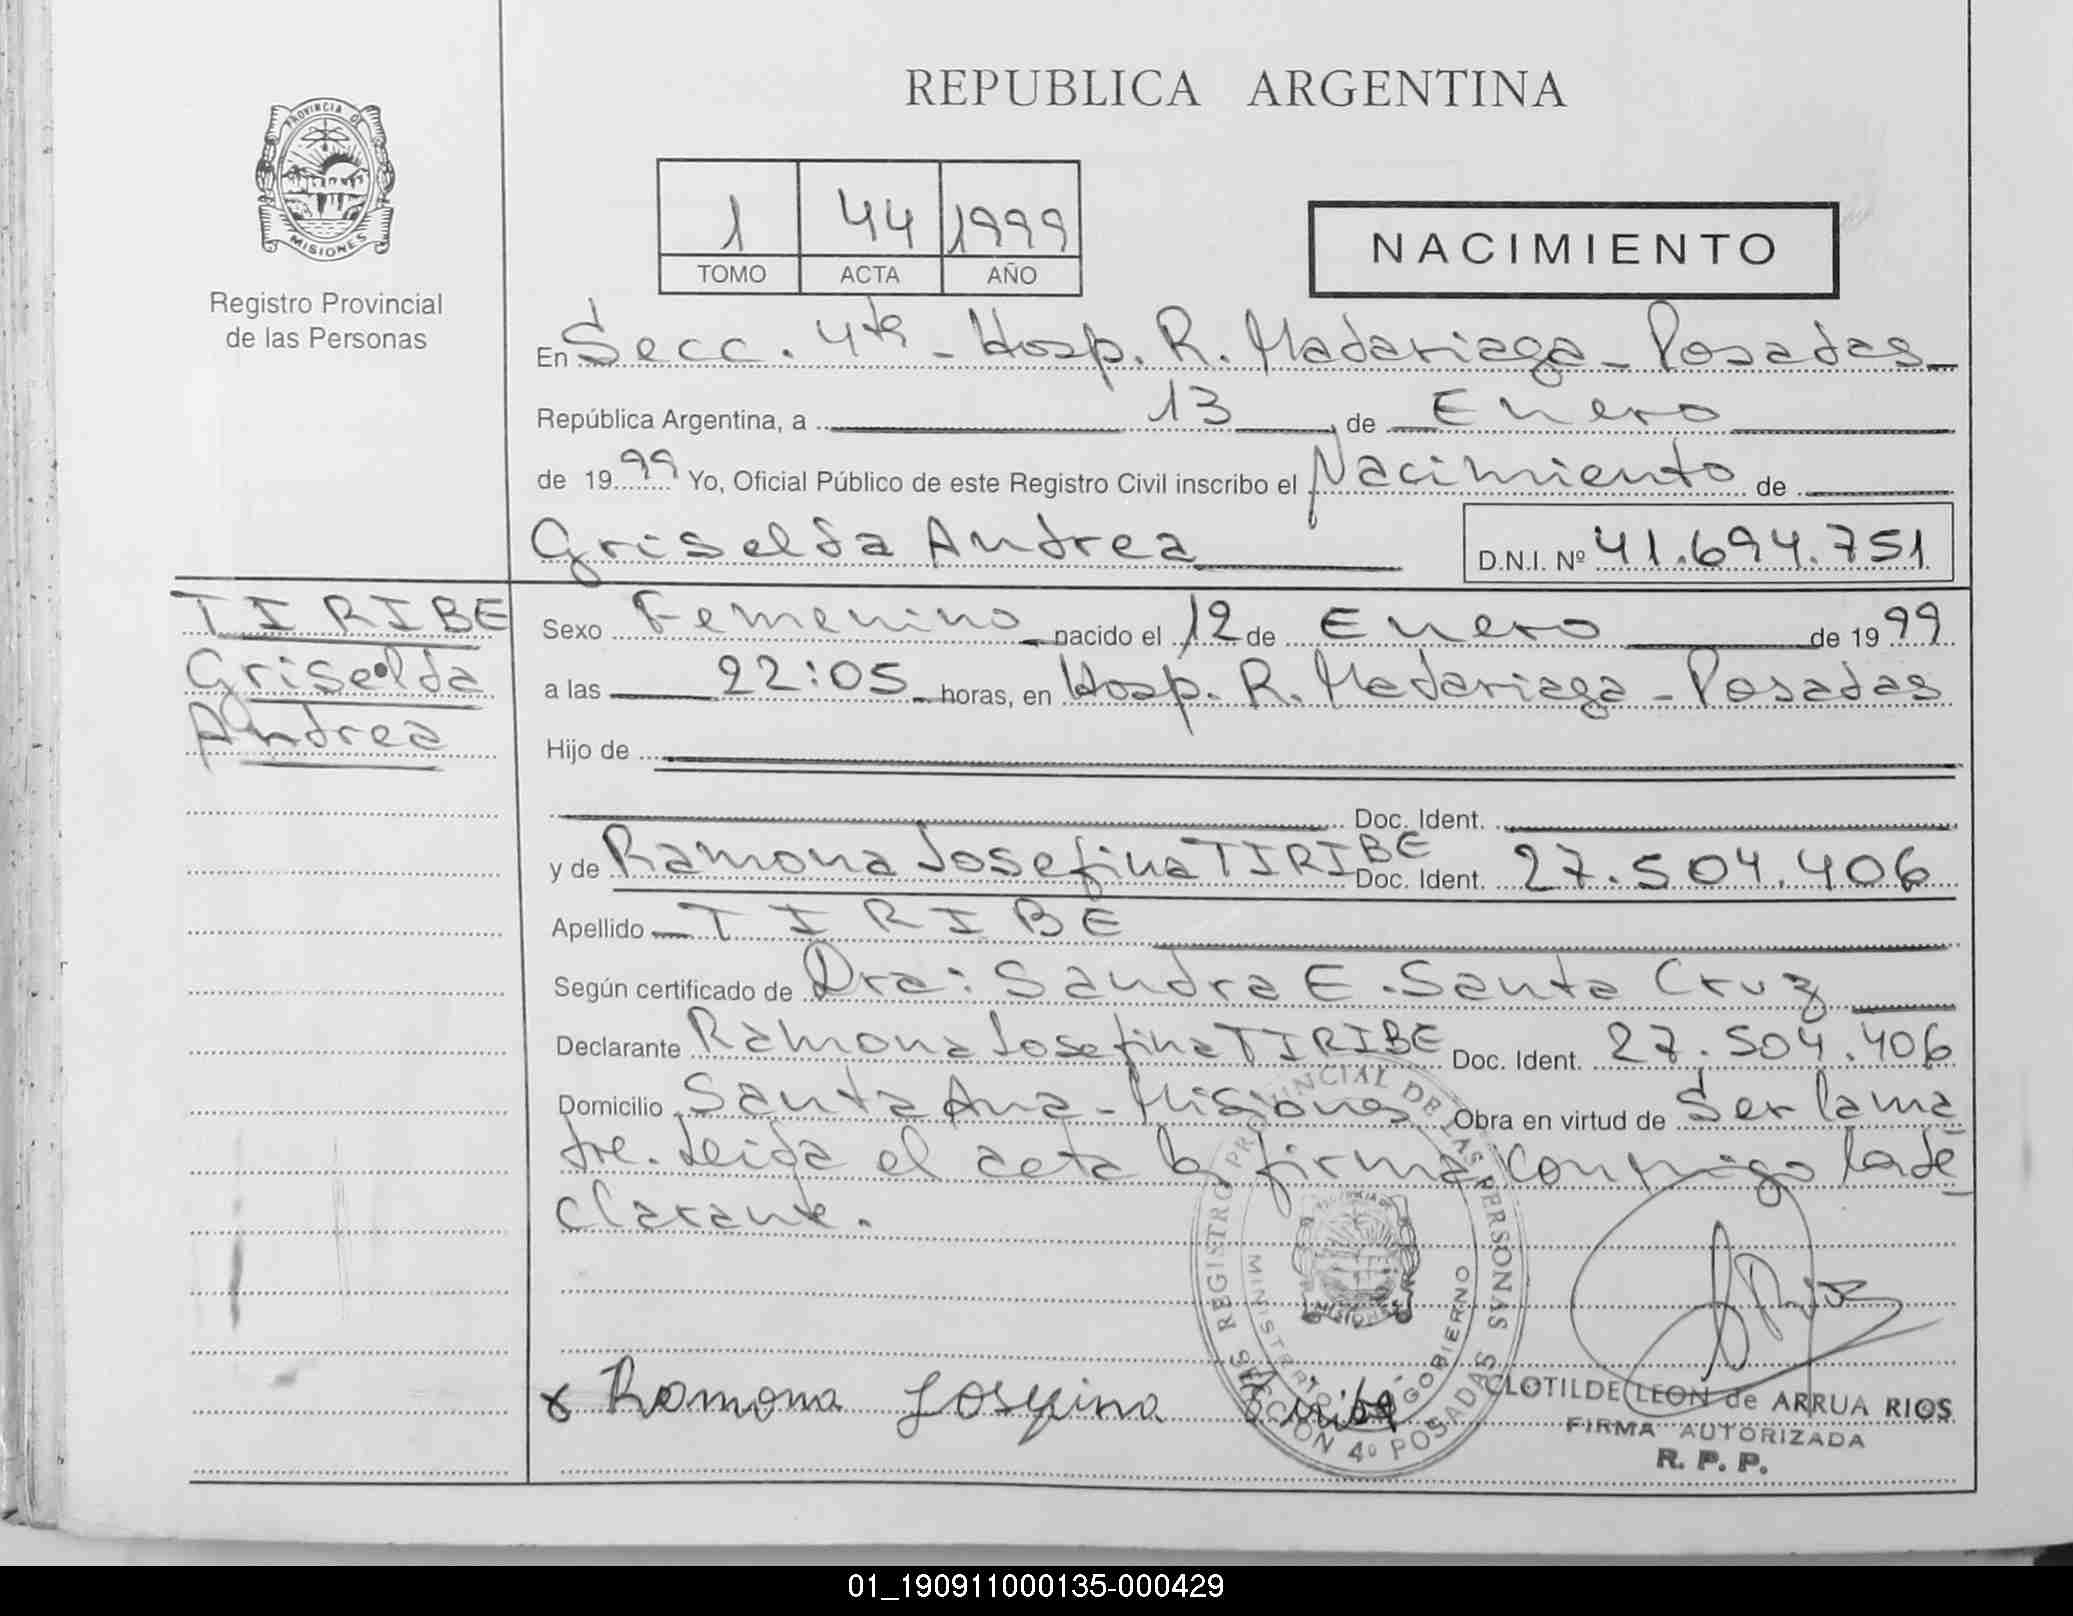 REPUBLICA ARGENTINA
PROVINCIA DE
MISIONES
Registro Provincial
de las Personas
1 44 1999
TOMO ACTA AÑO
NACIMIENTO
En Secc. 4ta - Hosp. R. Madariaga - Posadas
República Argentina, a 13 de Enero
de 1999 Yo, Oficial Público de este Registro Civil inscribo el Nacimiento de
Griselda Andrea D.N.I. Nº 41.694.751
TIRIBE
Griselda
Andrea
Sexo Femenino nacido el 12 de Enero de 1999
a las 22:05 horas, en Hosp. R. Madariaga - Posadas
Hijo de
Doc. Ident.
y de Ramona Josefina TIRIBE Doc. Ident. 27.504.406
Apellido TIRIBE
Según certificado de Dra: Sandra E. Santa Cruz
Declarante Ramona Josefina TIRIBE Doc. Ident. 27.504.406
Domicilio Santa Ana - Misiones Obra en virtud de Ser la ma
dre. Leida el acta la firma conmigo la de
clarante.
REGISTRO PROVINCIAL DE LAS PERSONAS
MINISTERIO GOBIERNO
MISIONES
SECCION 4º POSADAS
x Ramona Josefina Tiribe
CLOTILDE LEON de ARRUA RIOS
FIRMA AUTORIZADA
R. P. P.
01_190911000135-000429